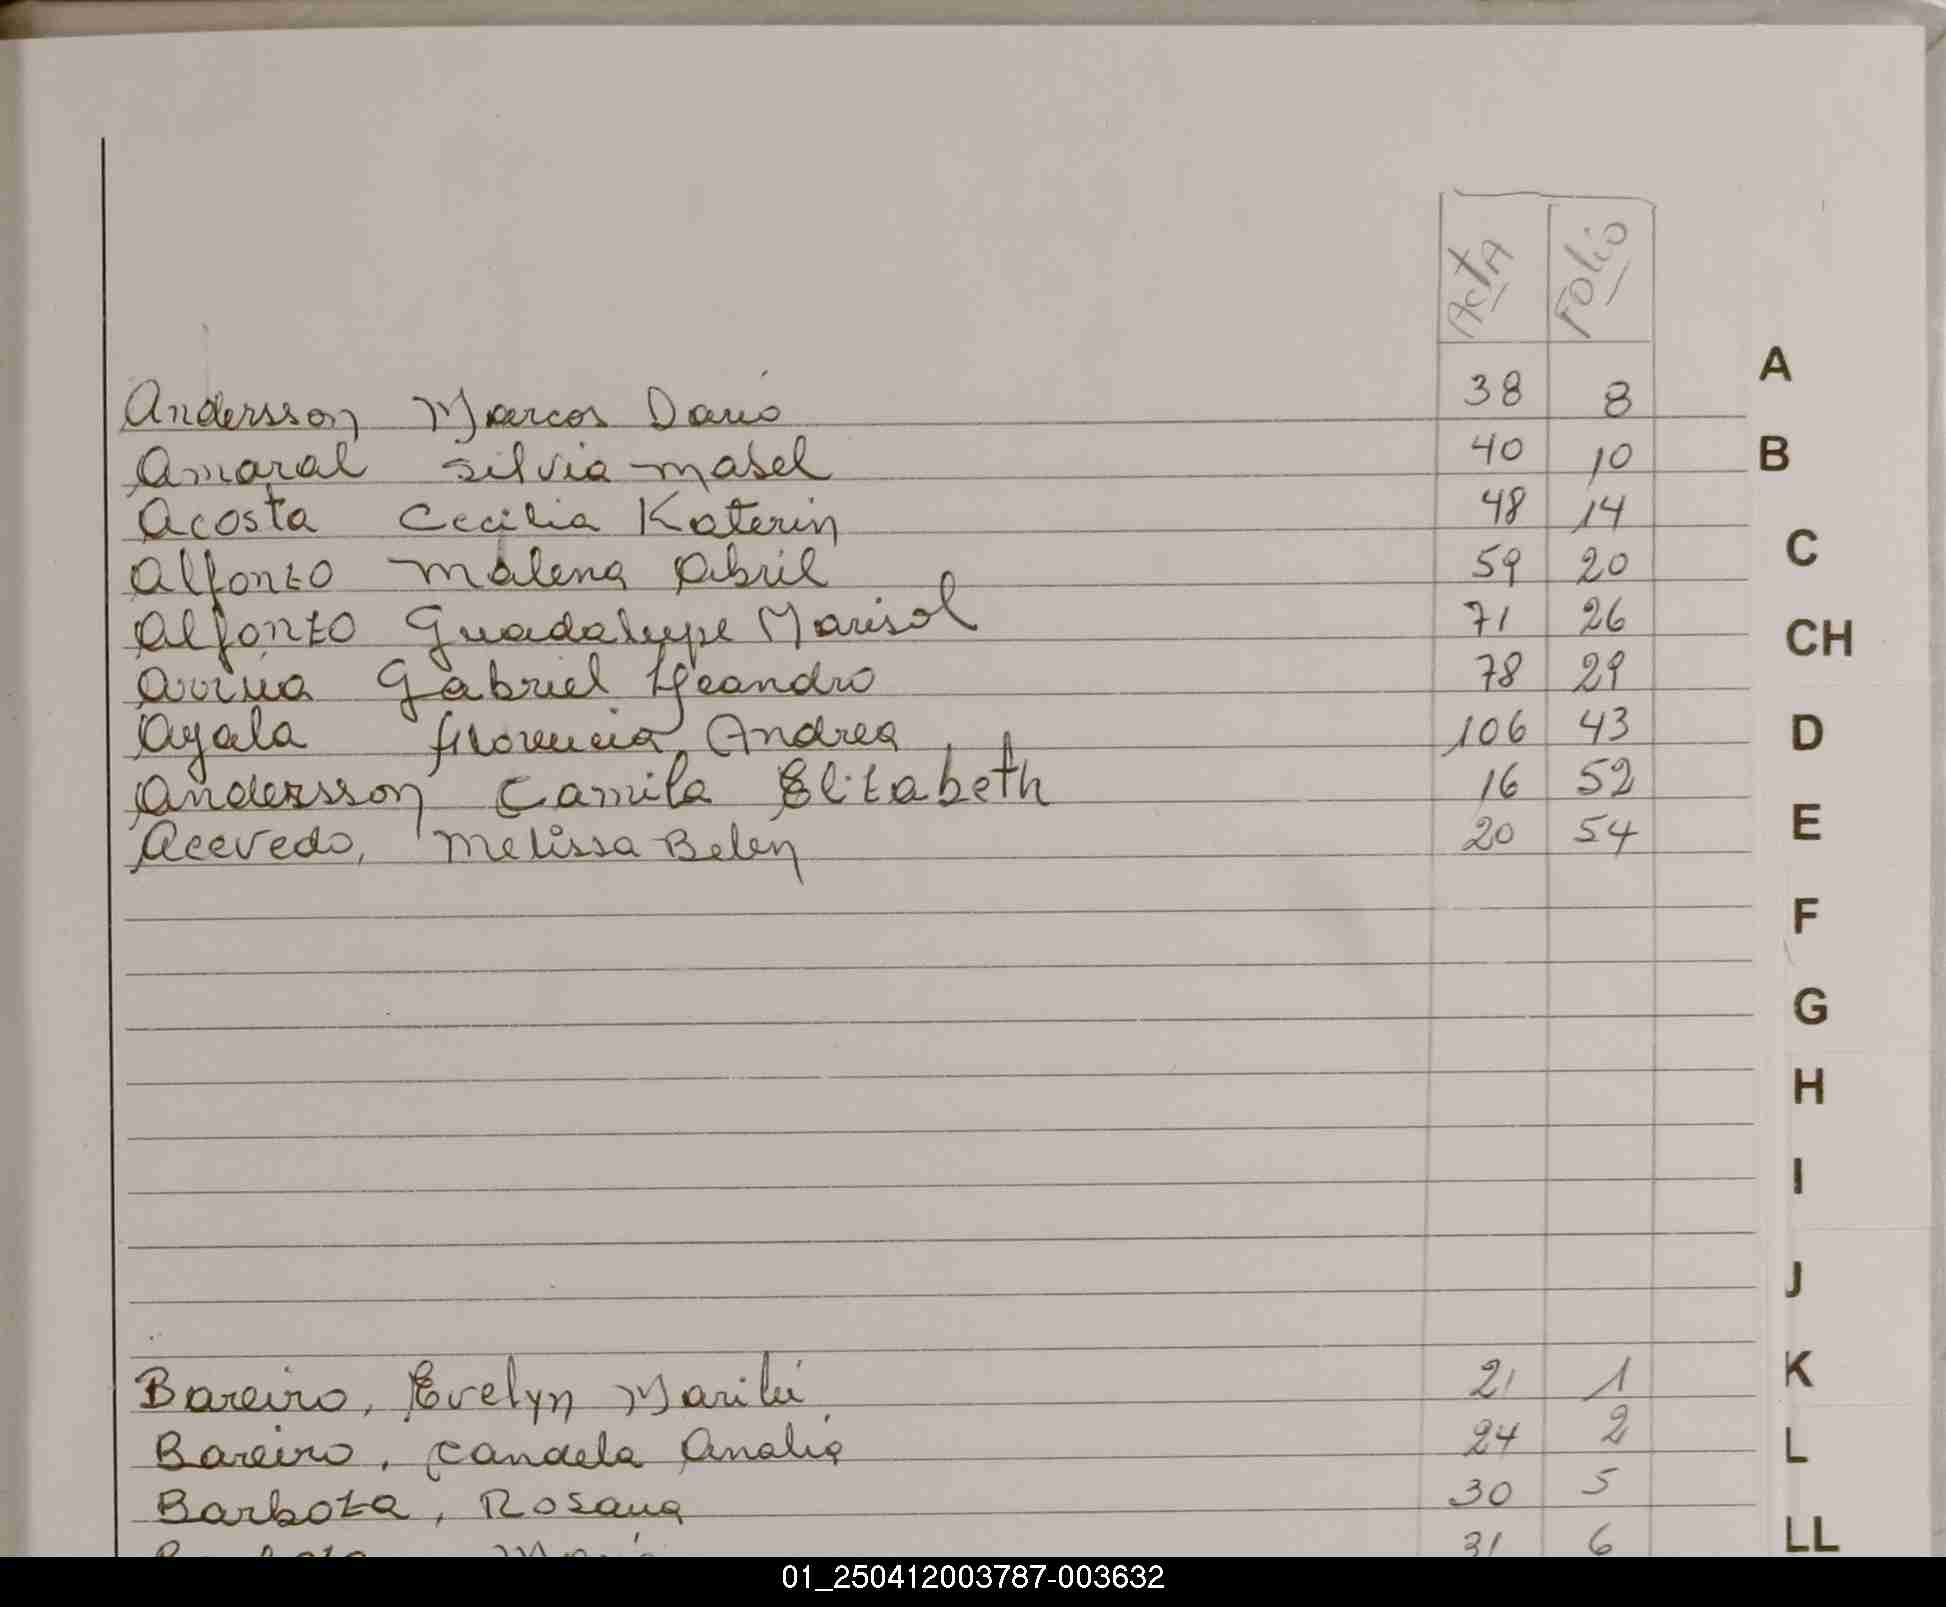 Acta Folio
A
Andersson Marcos Dario 38 8
Amaral Silvia Mabel 40 10
B
Acosta Cecilia Katerin 48 14
C
Alfonzo Malena Abril 59 20
Alfonzo Guadalupe Marisol 71 26
CH
Arrua Gabriel 78 29
Ayala Florencia Andrea 106 43
D
Andersson Camila Elizabeth 16 52
Acevedo, Melissa Belen 20 54
E
F
G
H
I
J
K
Bareiro, Evelyn Marilú 21 1
Bareiro, Candela Analia 24 2
L
Barboza, Rosana 30 5
31 6
LL
01_250412003787-003632